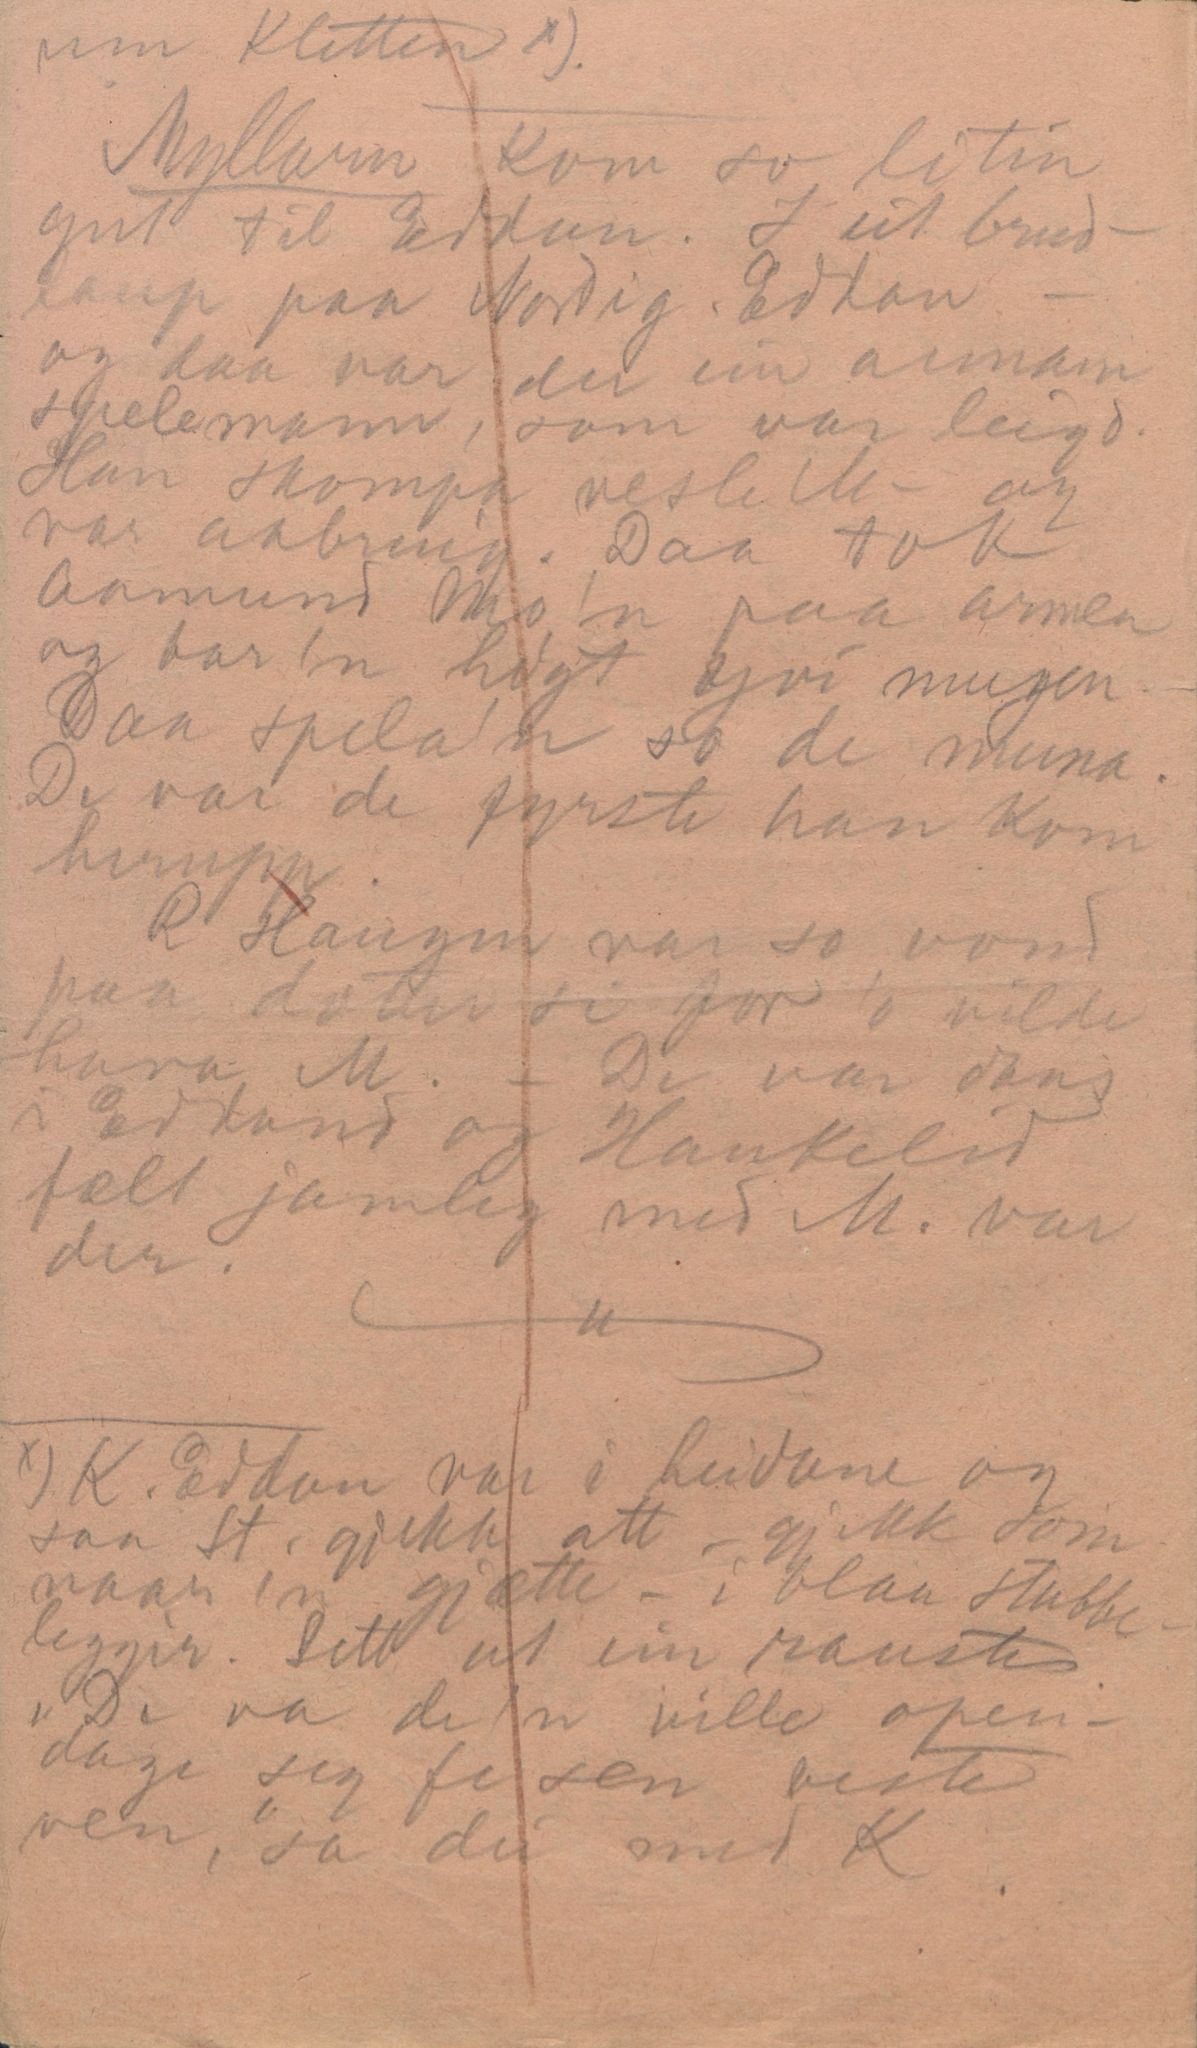 um Kletten x).
Myllarn kom so litin
gut til Edland. I eit brud-
laup paa Nordig. Edland -
og daa var der ein annam
spelemann, som var leigd.
Han skompa vesle M - og
var aabruig. Daa tok
Aamund Mo'n paa armen
og bar'n høgt yvi mugen -
Daa spela'n so de muna.
De var de fyrste han kom
herupa.
R Haugen var so vond
paa doter si for 'o vilde
hava M. - De var dans
i Edland og Haukelid
fælt jamleg med M. var
der.
"
x) K. Edland var i heidane og
saa St. gjekk att - gjekk som
naar'n gjætte - i blaa stubbe-
leggir. Sett ut ein rauste
"De va de'n ville open-
dage seg fe sen veste
ven," sa dei med K.